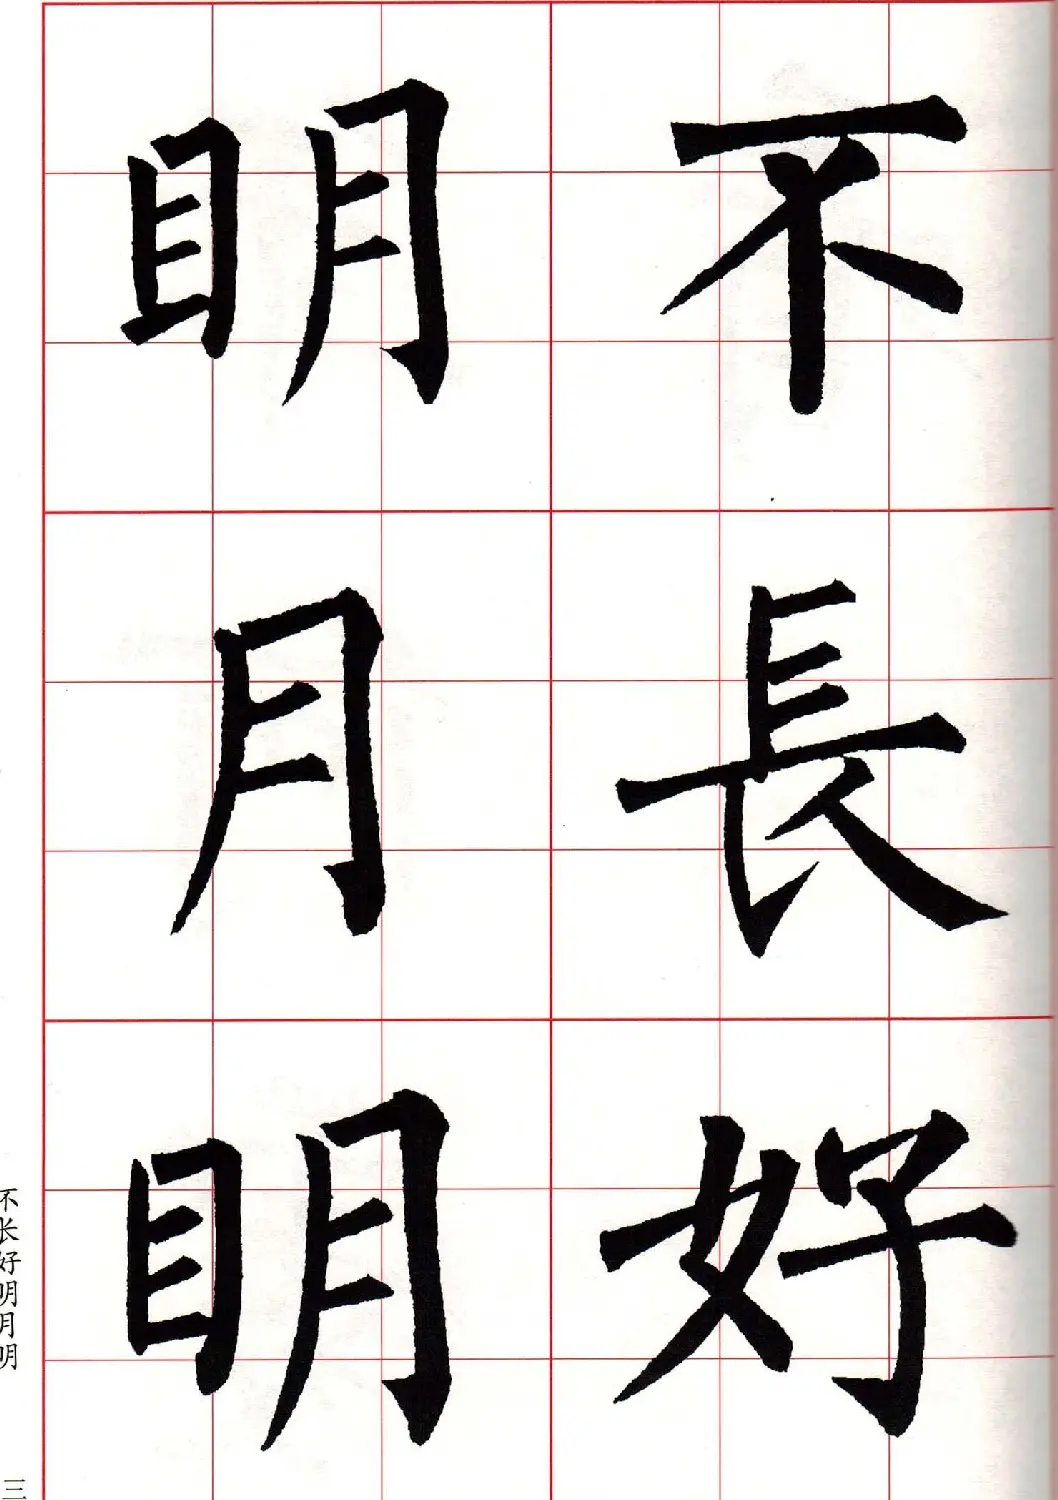 不長好
明月明
不长好明月明
三